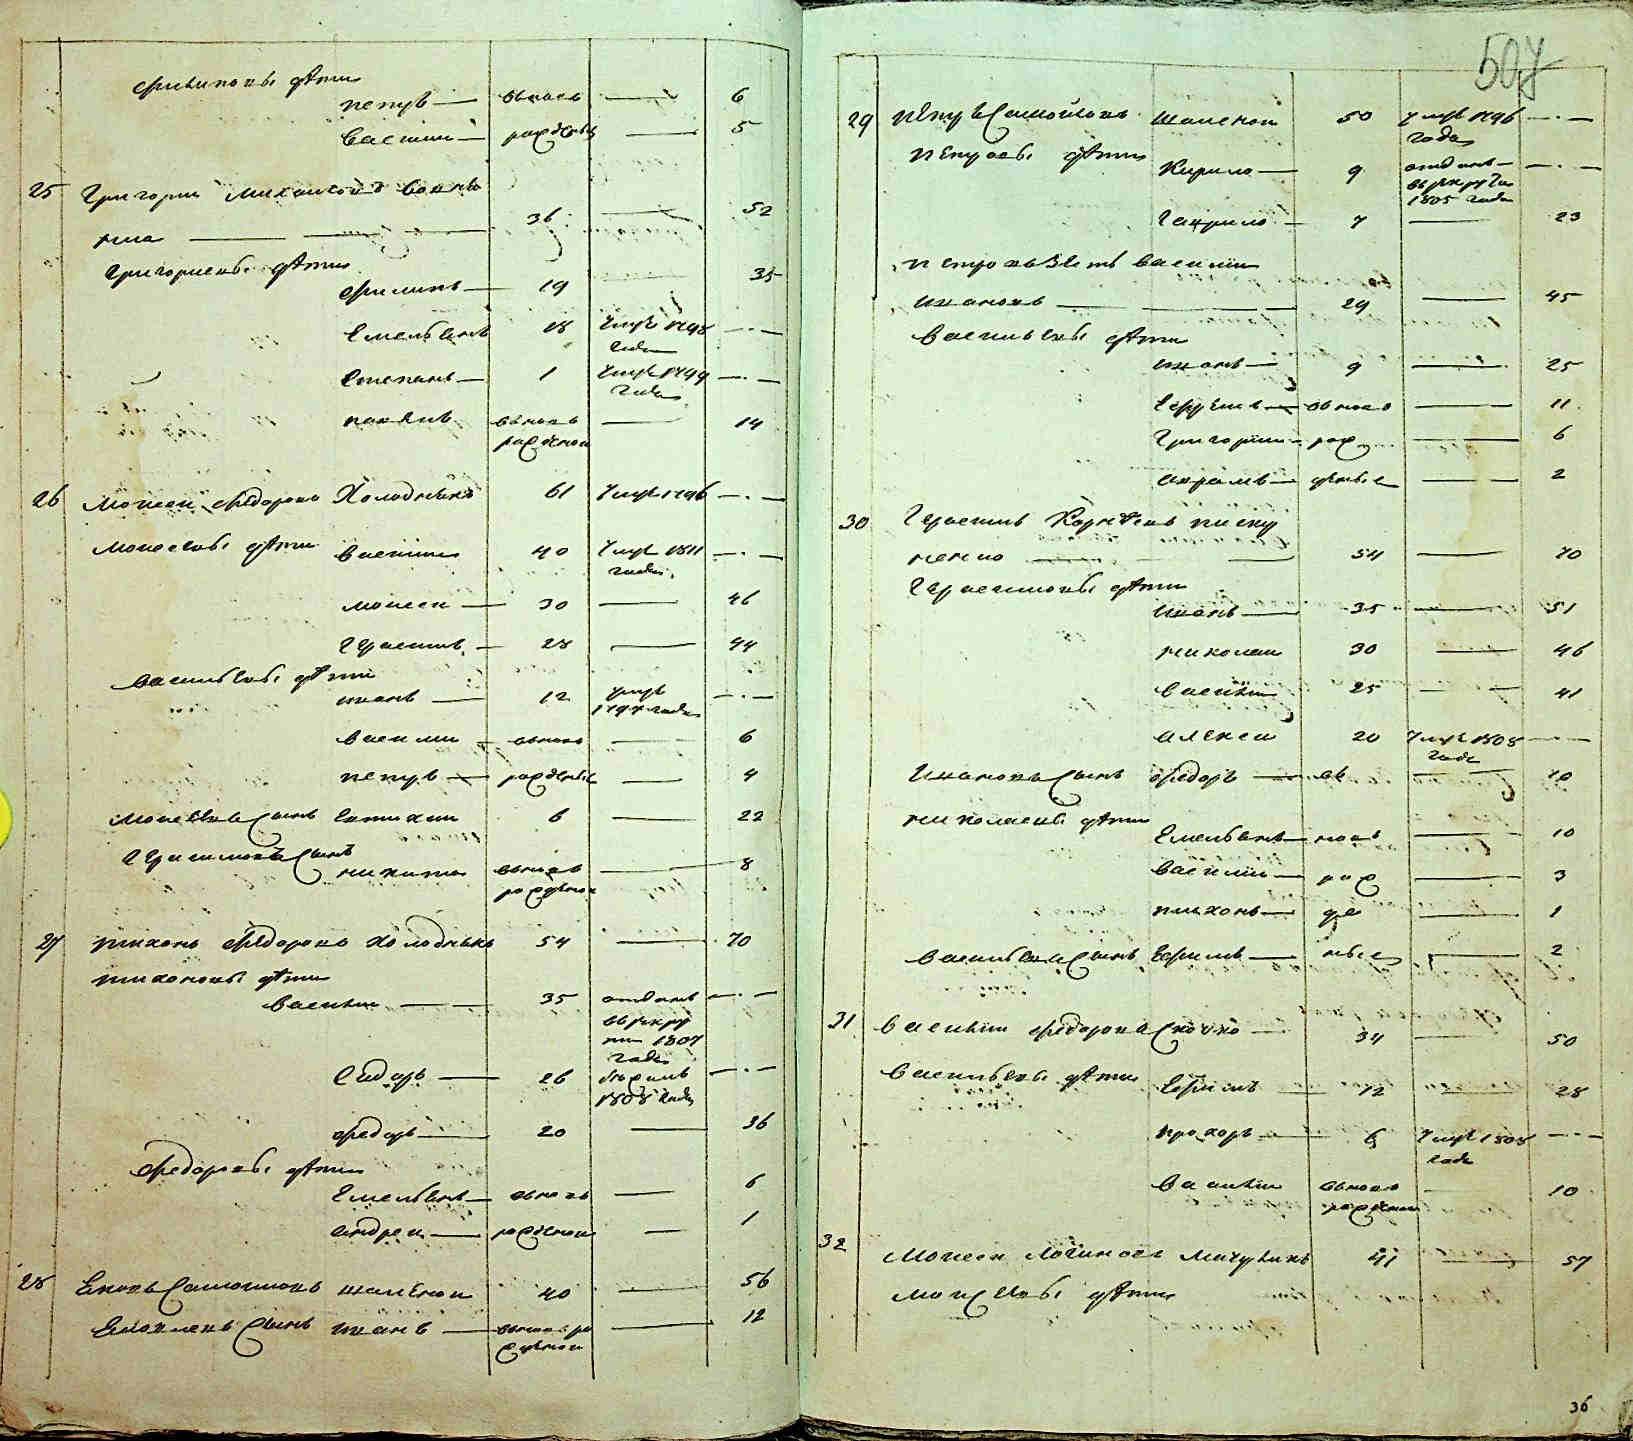 Филиповы дѣти
Петръ — вновь — 6
Василий — рожденные — 5
25 Григорий Михайловъ
36 — 52
Григорьевы дѣти
Филипъ — 19 — 35
Емельянъ 18 умре 1798 — . —
года
Степанъ — 1 умре 1799 — . —
года
Яковъ вновь — 14
рожденой
26 Моисей Федоровъ Холоднякъ 61 умре 1796 — . —
Моисеевы дѣти Василий 40 умре 1811 — . —
года
Моисей — 30 — 46
Герасимъ — 28 — 44
Васильевы дѣти
Иванъ — 12 умре — . —
1797 года
Василий — вновь — 6
Петръ — рожденные — 4
Моисеевъ сынъ Евтихий 6 — 22
Герасимовъ сынъ
Никита вновь — 8
рожденой
27 Тихонъ Федоровъ Холоднякъ 54 — 70
Тихоновы дѣти
Василий — 35 отданъ — . —
въ рекру
ты 1807
года
Сидоръ — 26 бѣжалъ — . —
1808 года
Федоръ — 20 — 36
Федоровы дѣти
Емельянъ — вновь — 6
Андрей — рожденой — 1
28 Самойловъ Шаленой 40 — 56
сынъ Иванъ — вновь ро 12
жденой
507
29 Петръ Самойловъ Шаленой 50 умре 1796 — . —
года
Петровы дѣти
Кирило — 9 отданъ — . —
въ рекруты
1805 года
Гаврило — 7 — 23
Петровъ зять Василий
Ивановъ — 29 — 45
Васильевы дѣти
Иванъ — 9 — 25
вновь — 11
Григорий — рож — 6
Абрамъ — денные — 2
30 Герасимъ Корнѣевъ
54 — 70
Герасимовы дѣти
Иванъ — 35 — 51
Николай 30 — 46
Василий 25 — 41
Алексей 20 умре 1808 — . —
года
Ивановъ сынъ Федоръ — въ —
Николаевы дѣти
Емельянъ — новь — 10
Василий — рож — 3
Тихонъ — де — 1
Васильевъ сынъ Ефимъ — нные — 2
31 Василий Федоровъ Скочко — 34 — 50
Васильевы дѣти Ефимъ — 12 — 28
Прохоръ — 6 умре 1808 — . —
года
Василий вновь — 10
рожденой
32
Моисей Логиновъ 41 — 57
Моисеевы дѣти
36